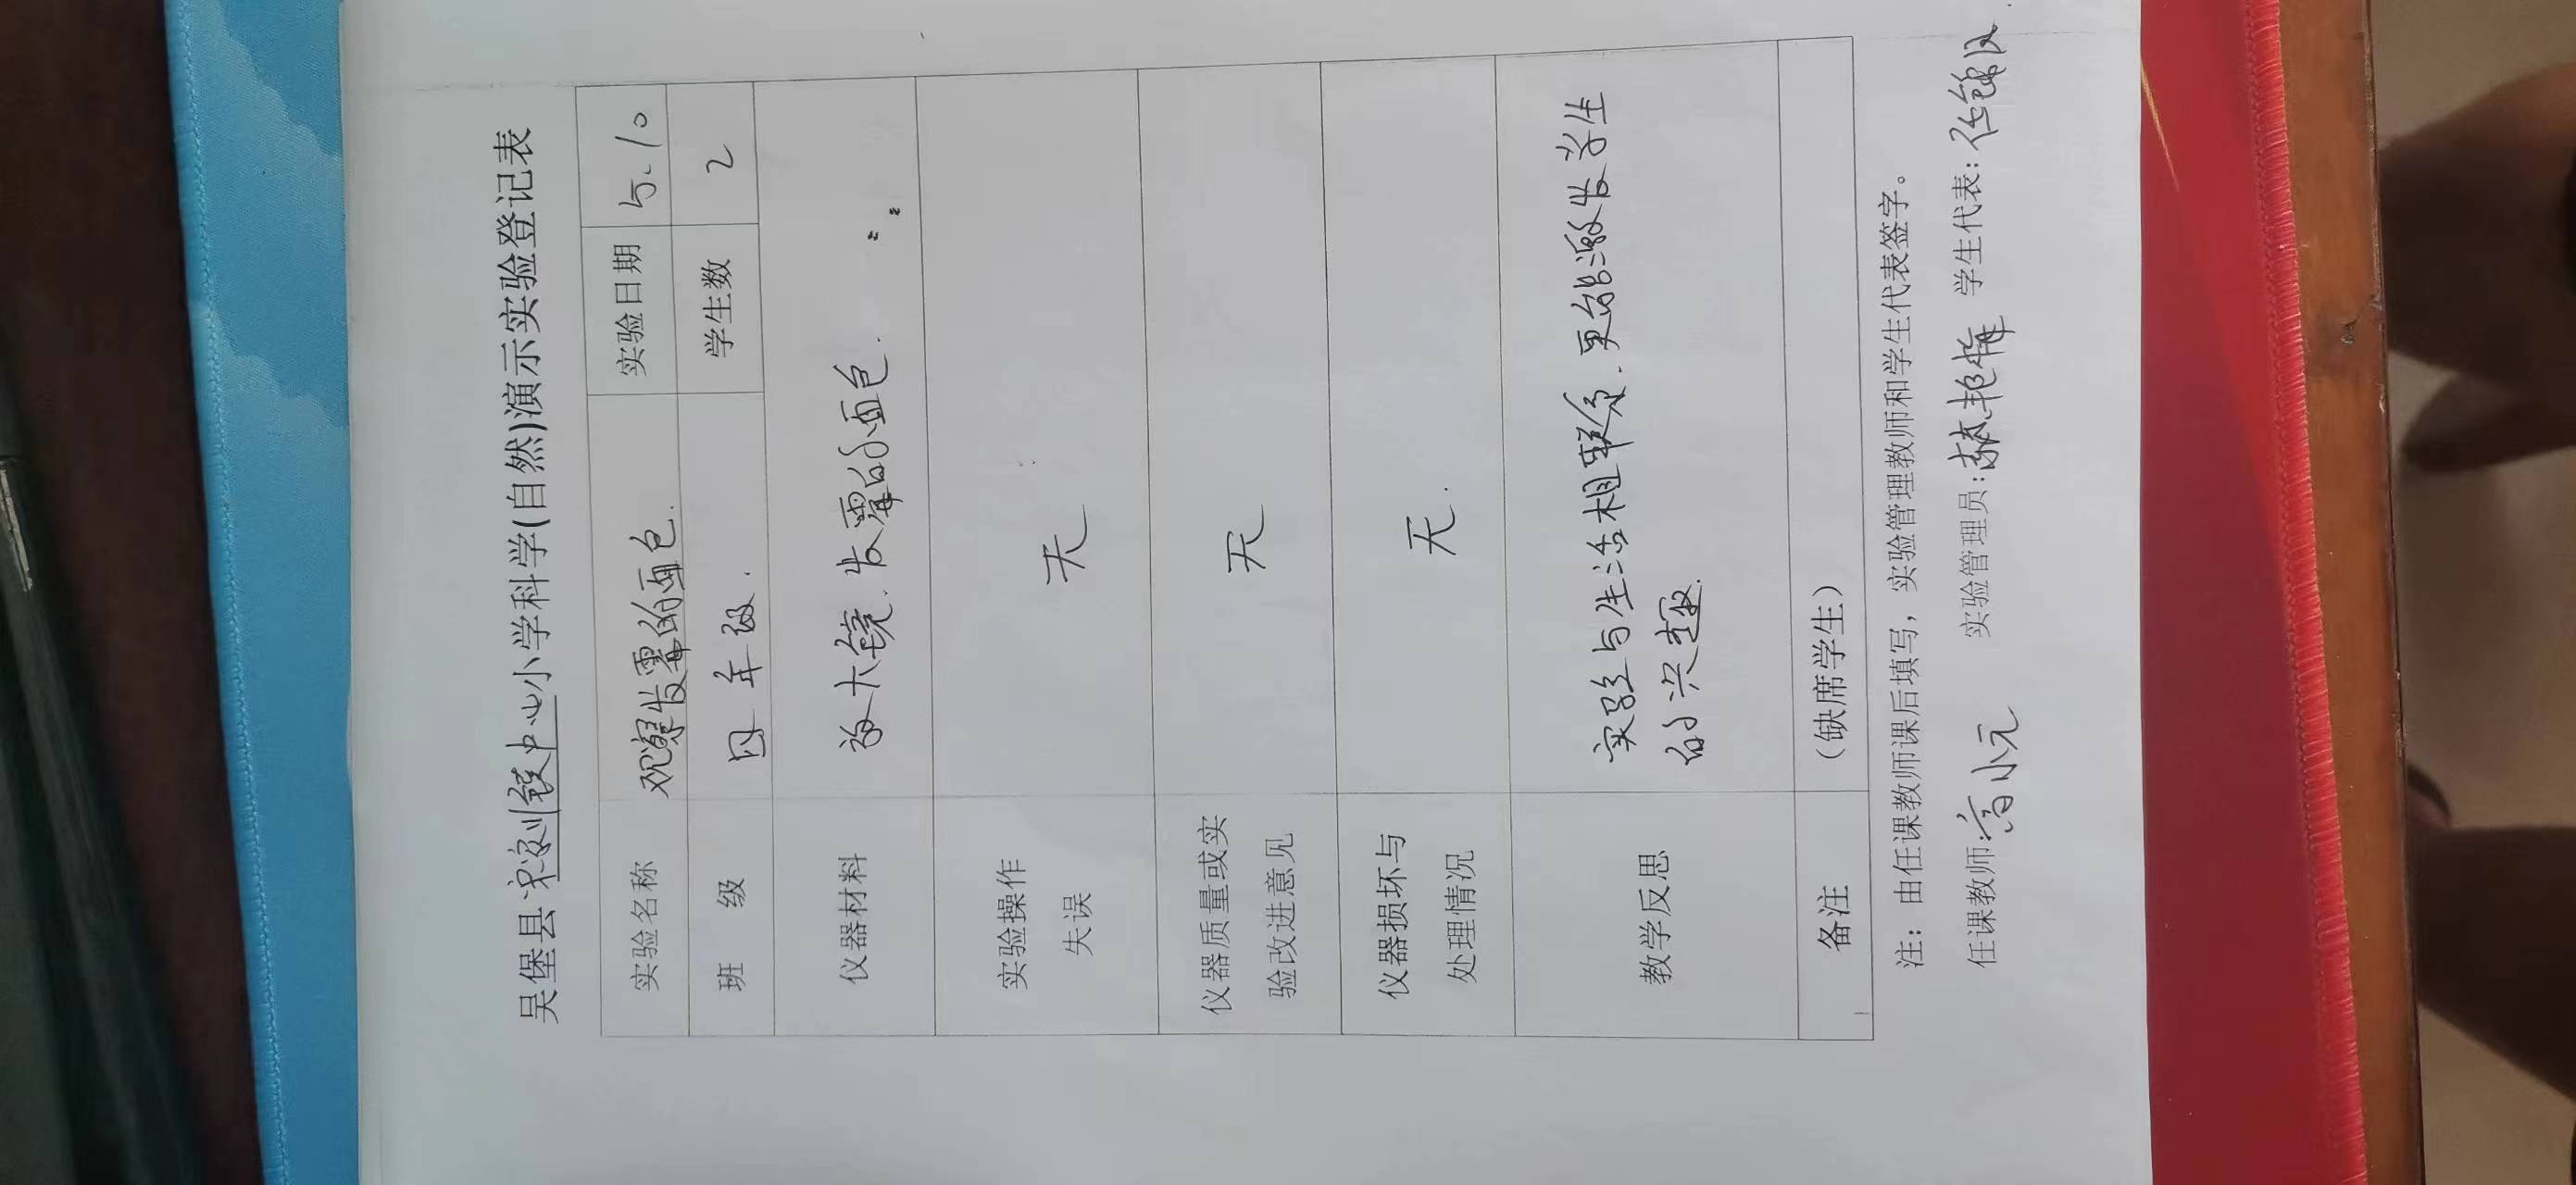 吴堡县宋家川镇中心小学科学(自然)演示实验登记表
实验名称 观察发霉的面包. 实验日期 5.10
班 级 四年级. 学生数 2
仪器材料 放大镜.发霉的面包.
实验操作
失误 无
仪器质量或实
验改进意见 无
仪器损坏与
处理情况 无.
教学反思 实验与生活相联系.更能激发学生
的兴趣.
备注 (缺席学生)
注:由任课教师课后填写,实验管理教师和学生代表签字。
任课教师:高小元 实验管理员: 学生代表: